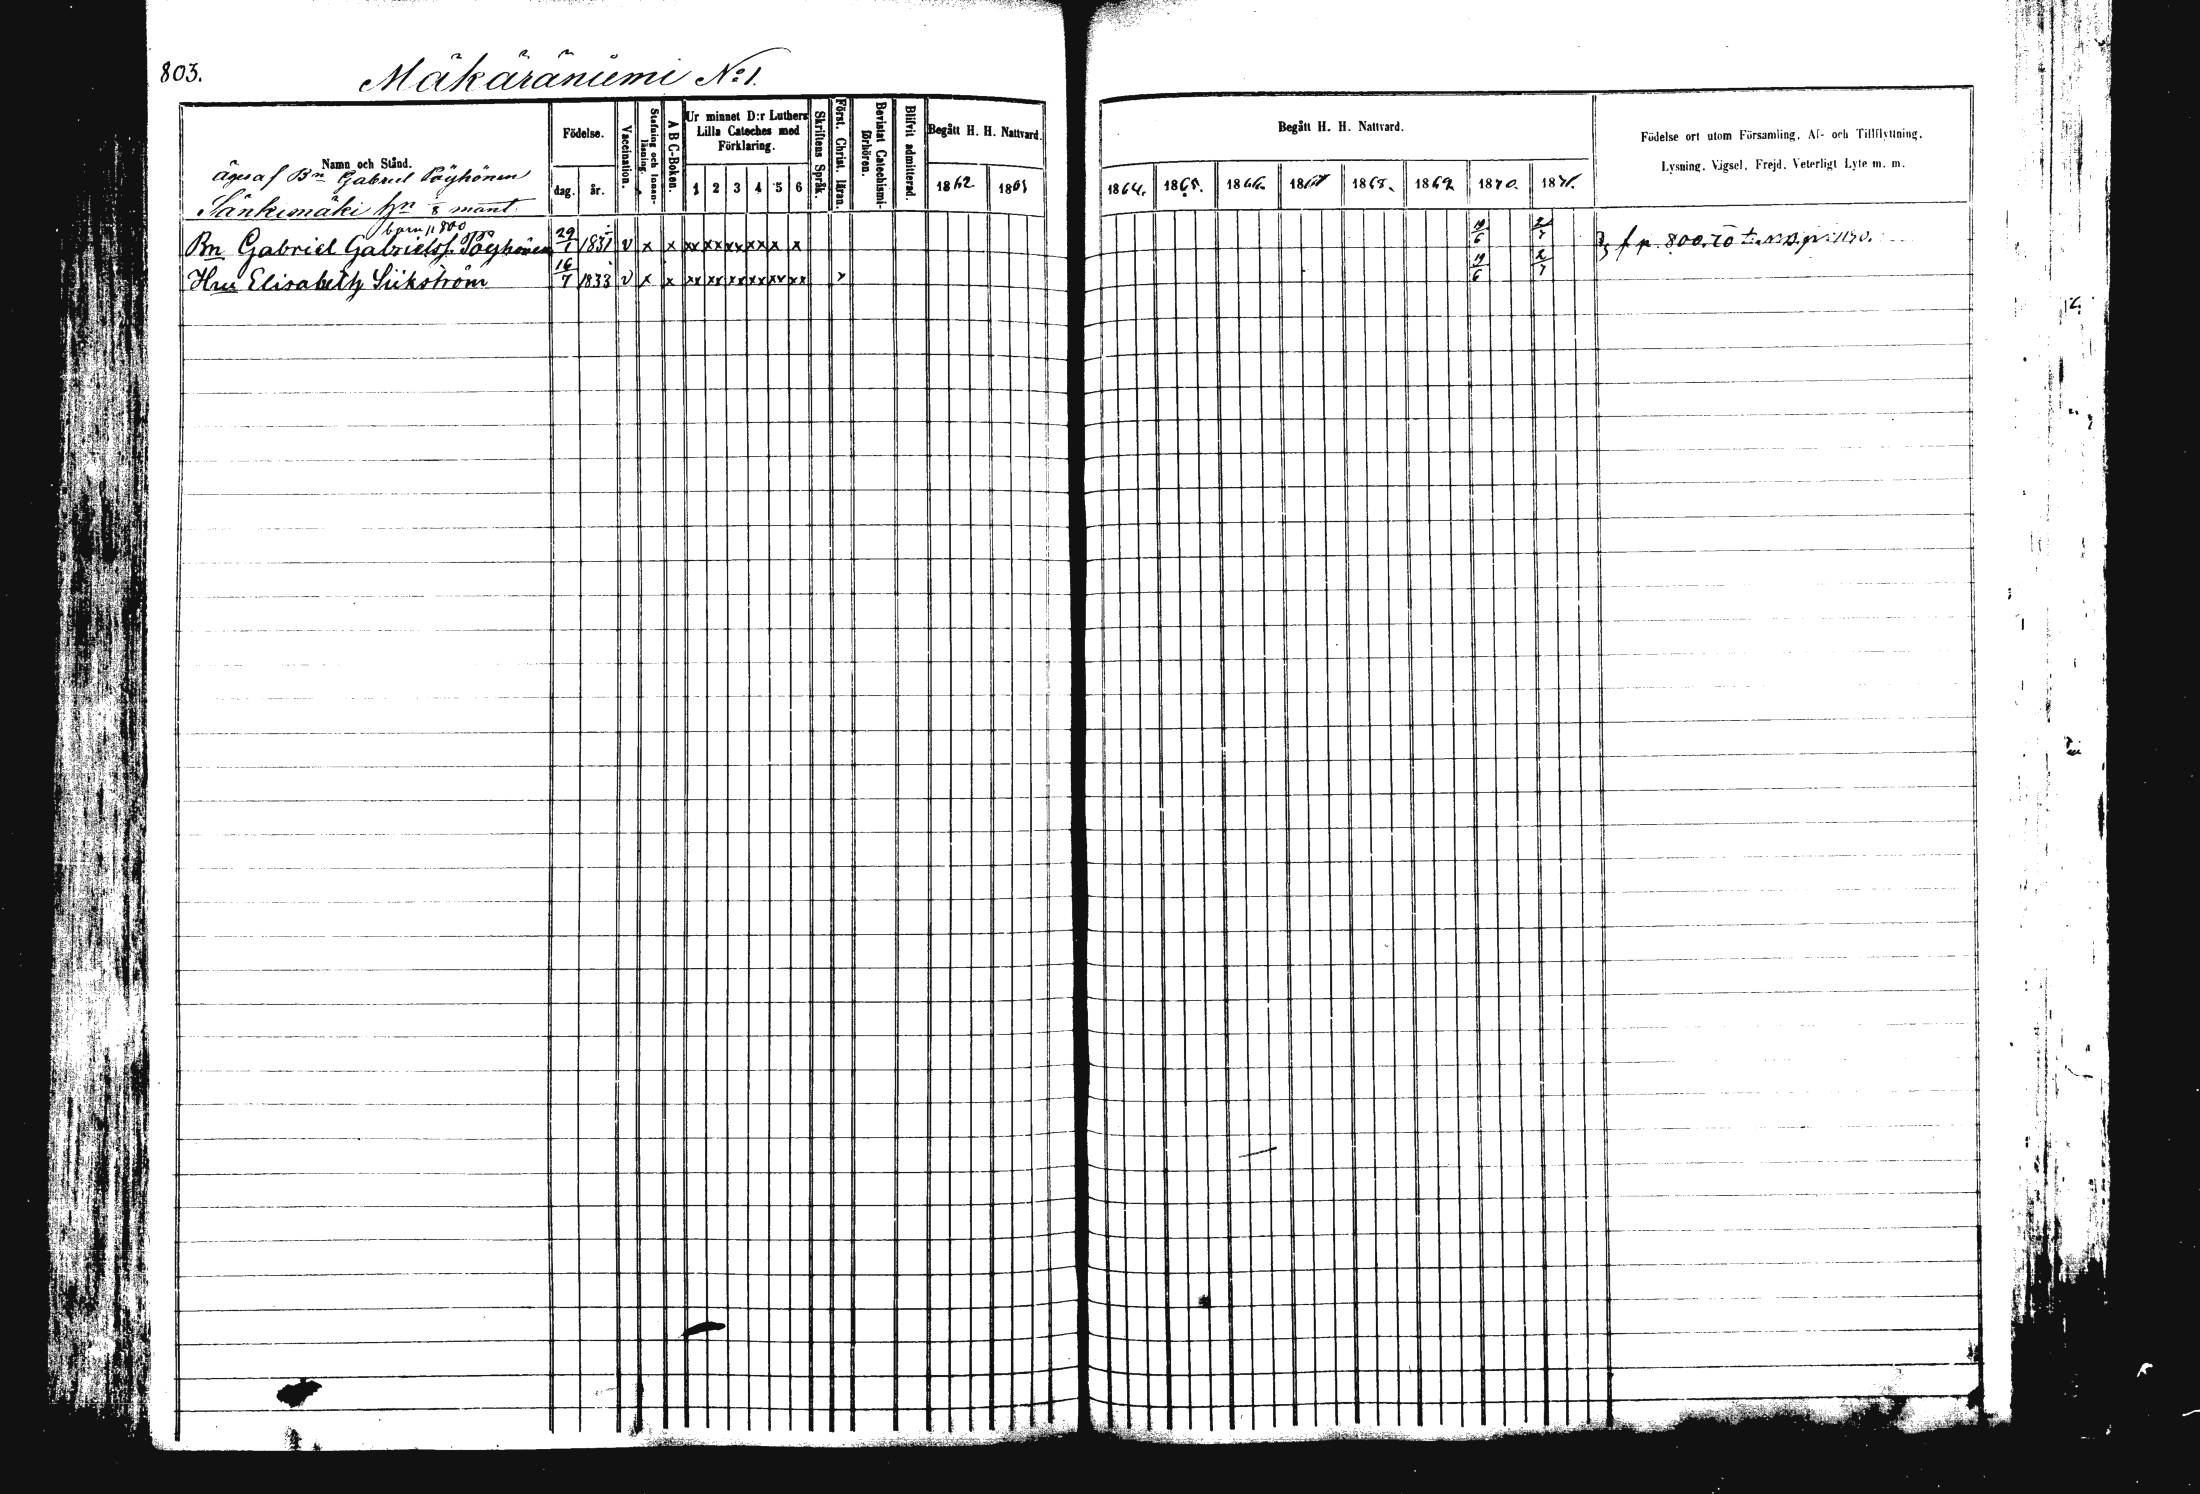 803.
Mäkäräniemi No 1.
Namn och Stånd.
Födelse.
dag.
år.
Vaccination.
Stafning och Innanläsning.
A B C-Boken.
Ur minnet D:r Luthers Lilla Cateches med Förklaring.
1 2 3 4 5 6
Skriftens Språk.
Först. Christ. läran.
Bevistat Catechismi-förhören.
Blifvit admitterad.
Begått H. H. Nattvard.
1862 1863
Begått H. H. Nattvard.
1864. 1865. 1866. 1867 1868. 1869 1870. 1871.
Födelse ort utom Församling, Af- och Tillflyttning,
Lysning, Vigsel, Frejd, Veterligt Lyte m. m.
äges af Bn Gabriel Pöyhönen
Sänkimäki hn 1/8 mant.
barn p 800
Bn Gabriel Gabrielsf. Pöyhönen 29/1 1831 v x x xx xx xx xx x x 19/6 2/7 f. p. 800.
Hru Elisabeth Siikström 16/7 1833 v x x xx xx xx xx xx xx x 19/6 2/7